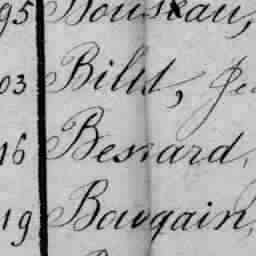 95 Bousseau,
03 Billet, Je
16 Besnard,
19 Bougain,